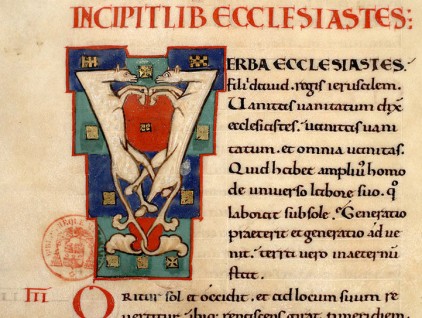 INCIPIT LIB ECCLESIASTES:
VERBA ECCLESIASTES.
Fili dauid. regis ierusalem.
Uanitas uanitatum dix
ecclesiastes. uanitas uani
tatum. et omnia uanitas.
Quid habet ampliuS homo
de uniuerso labore suo. q
laborat sub sole. Generatio
praeterit et generatio ad ue
nit. terra uero in aeternum
stat.
III ORitur sol et occidit. et ad locum suum re
uertitur. ibiq; renascens girat